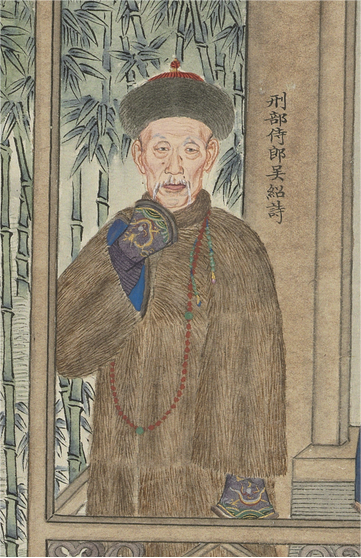 刑部侍郎吴紹詩